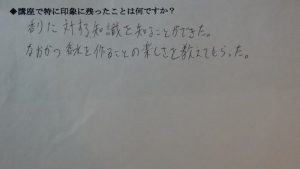 ◆講座で特に印象に残ったことは何ですか？
香りに対する知識を知ることができた。
なおかつ香水を作ることの楽しさを教えてもらった。